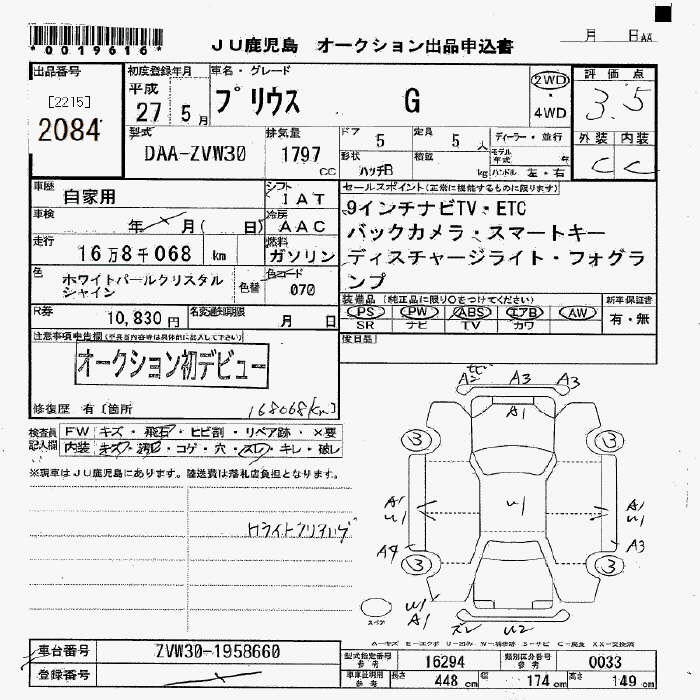 *0019616*
JU鹿児島 オークション出品申込書
月 日AA
出品番号
[2215]
2084
初度登録年月
平成
27 5月
車名・グレード
プリウス G
2WD
・
4WD
評価点
3.5
外装 内装
C C
型式
DAA-ZVW30
排気量
1797 CC
ドア 5
定員 5 人
ディーラー・並行
形状 ハッチB
積載 kg
モデル年式 年
ハンドル 左・右
車歴 自家用
シフト IAT
車検 年 月( 日)
冷房 AAC
走行 16万8千068 km
燃料 ガソリン
色 ホワイトパールクリスタル
シャイン
色替
色コード 070
R券 10,830円
名変通知期限 月 日
セールスポイント(正常に機能するものに限ります)
9インチナビTV・ETC
バックカメラ・スマートキー
ディスチャージライト・フォグラ
ンプ
装備品(純正品に限り○をつけてください)
新車保証書
PS PW ABS エアB AW
有・無
SR ナビ TV カワ
後日品
注意事項申告欄(不具合内容等は具体的に記入して下さい)
オークション初デビュー
修復歴 有〔箇所
168068(km)
検査員
記入欄
FW キズ・飛石・ヒビ割・リペア跡・×要
内装 キズ・汚れ・コゲ・穴・スレ・キレ・破レ
※現車はJU鹿児島にあります。陸送費は落札店負担となります。
A2 A3 A3
A1
3 3
A1 U1
U1
A1 U1
A4 A3
3 3
スペア
W1 A1
U2
A-キズ E-エクボ U-凹み W-補修跡 S-サビ C-腐食 XX-交換済
車台番号 ZVW30-1958660
登録番号
型式指定番号
参考
16294
類別区分番号
参考
0033
車庫証明用
参考
長さ 448 cm
幅 174 cm
高さ 149 cm